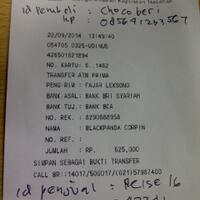 id pembeli : chocoberi
hp : 085691253567
22/09/2014 13:49:40
054705 0325-UDINUS
426501521894
NO. KARTU: 5..1452
TRANSFER ATM PRIMA
PENGIRIM : FAJAR LEKSONO
BANK ASAL: BANK BRI SYARIAH
BANK TUJ.: BANK BCA
NO. REK. : 8290888958
NAMA : BLACKPANDA CORPIN
NO. REF. :
JUMLAH : RP 625,000
SIMPAN SEBAGAI BUKTI TRANSFER
CALL BRI:14017/500017/(021)57987400
id penjual : Reise 16